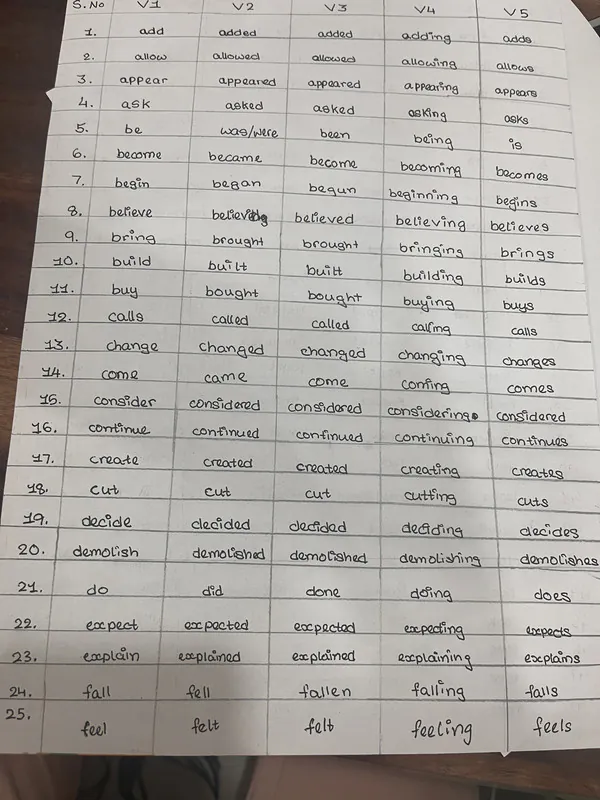 S.No V1 V2 V3 V4 V5
1. add added added adding adds
2. allow allowed allowed allowing allows
3. appear appeared appeared appearing appears
4. ask asked asked asking asks
5. be was/were been being is
6. become became become becoming becomes
7. begin began begun beginning begins
8. believe believed believing believes
9. bring brought brought bringing brings
10. build built built building builds
11. buy bought bought buying buys
12. calls called called calling calls
13. change changed changed changing changes
14. come came come coming comes
15. consider considered considered considering considered
16. continue continued continued continuing continues
17. create created created creating creates
18. cut cut cut cutting cuts
19. decide decided decided deciding decides
20. demolish demolished demolished demolishing demolishes
21. do did done doing does
22. expect expected expected expecting expects
23. explain explained explained explaining explains
24. fall fell fallen falling falls
25. feel felt felt feeling feels